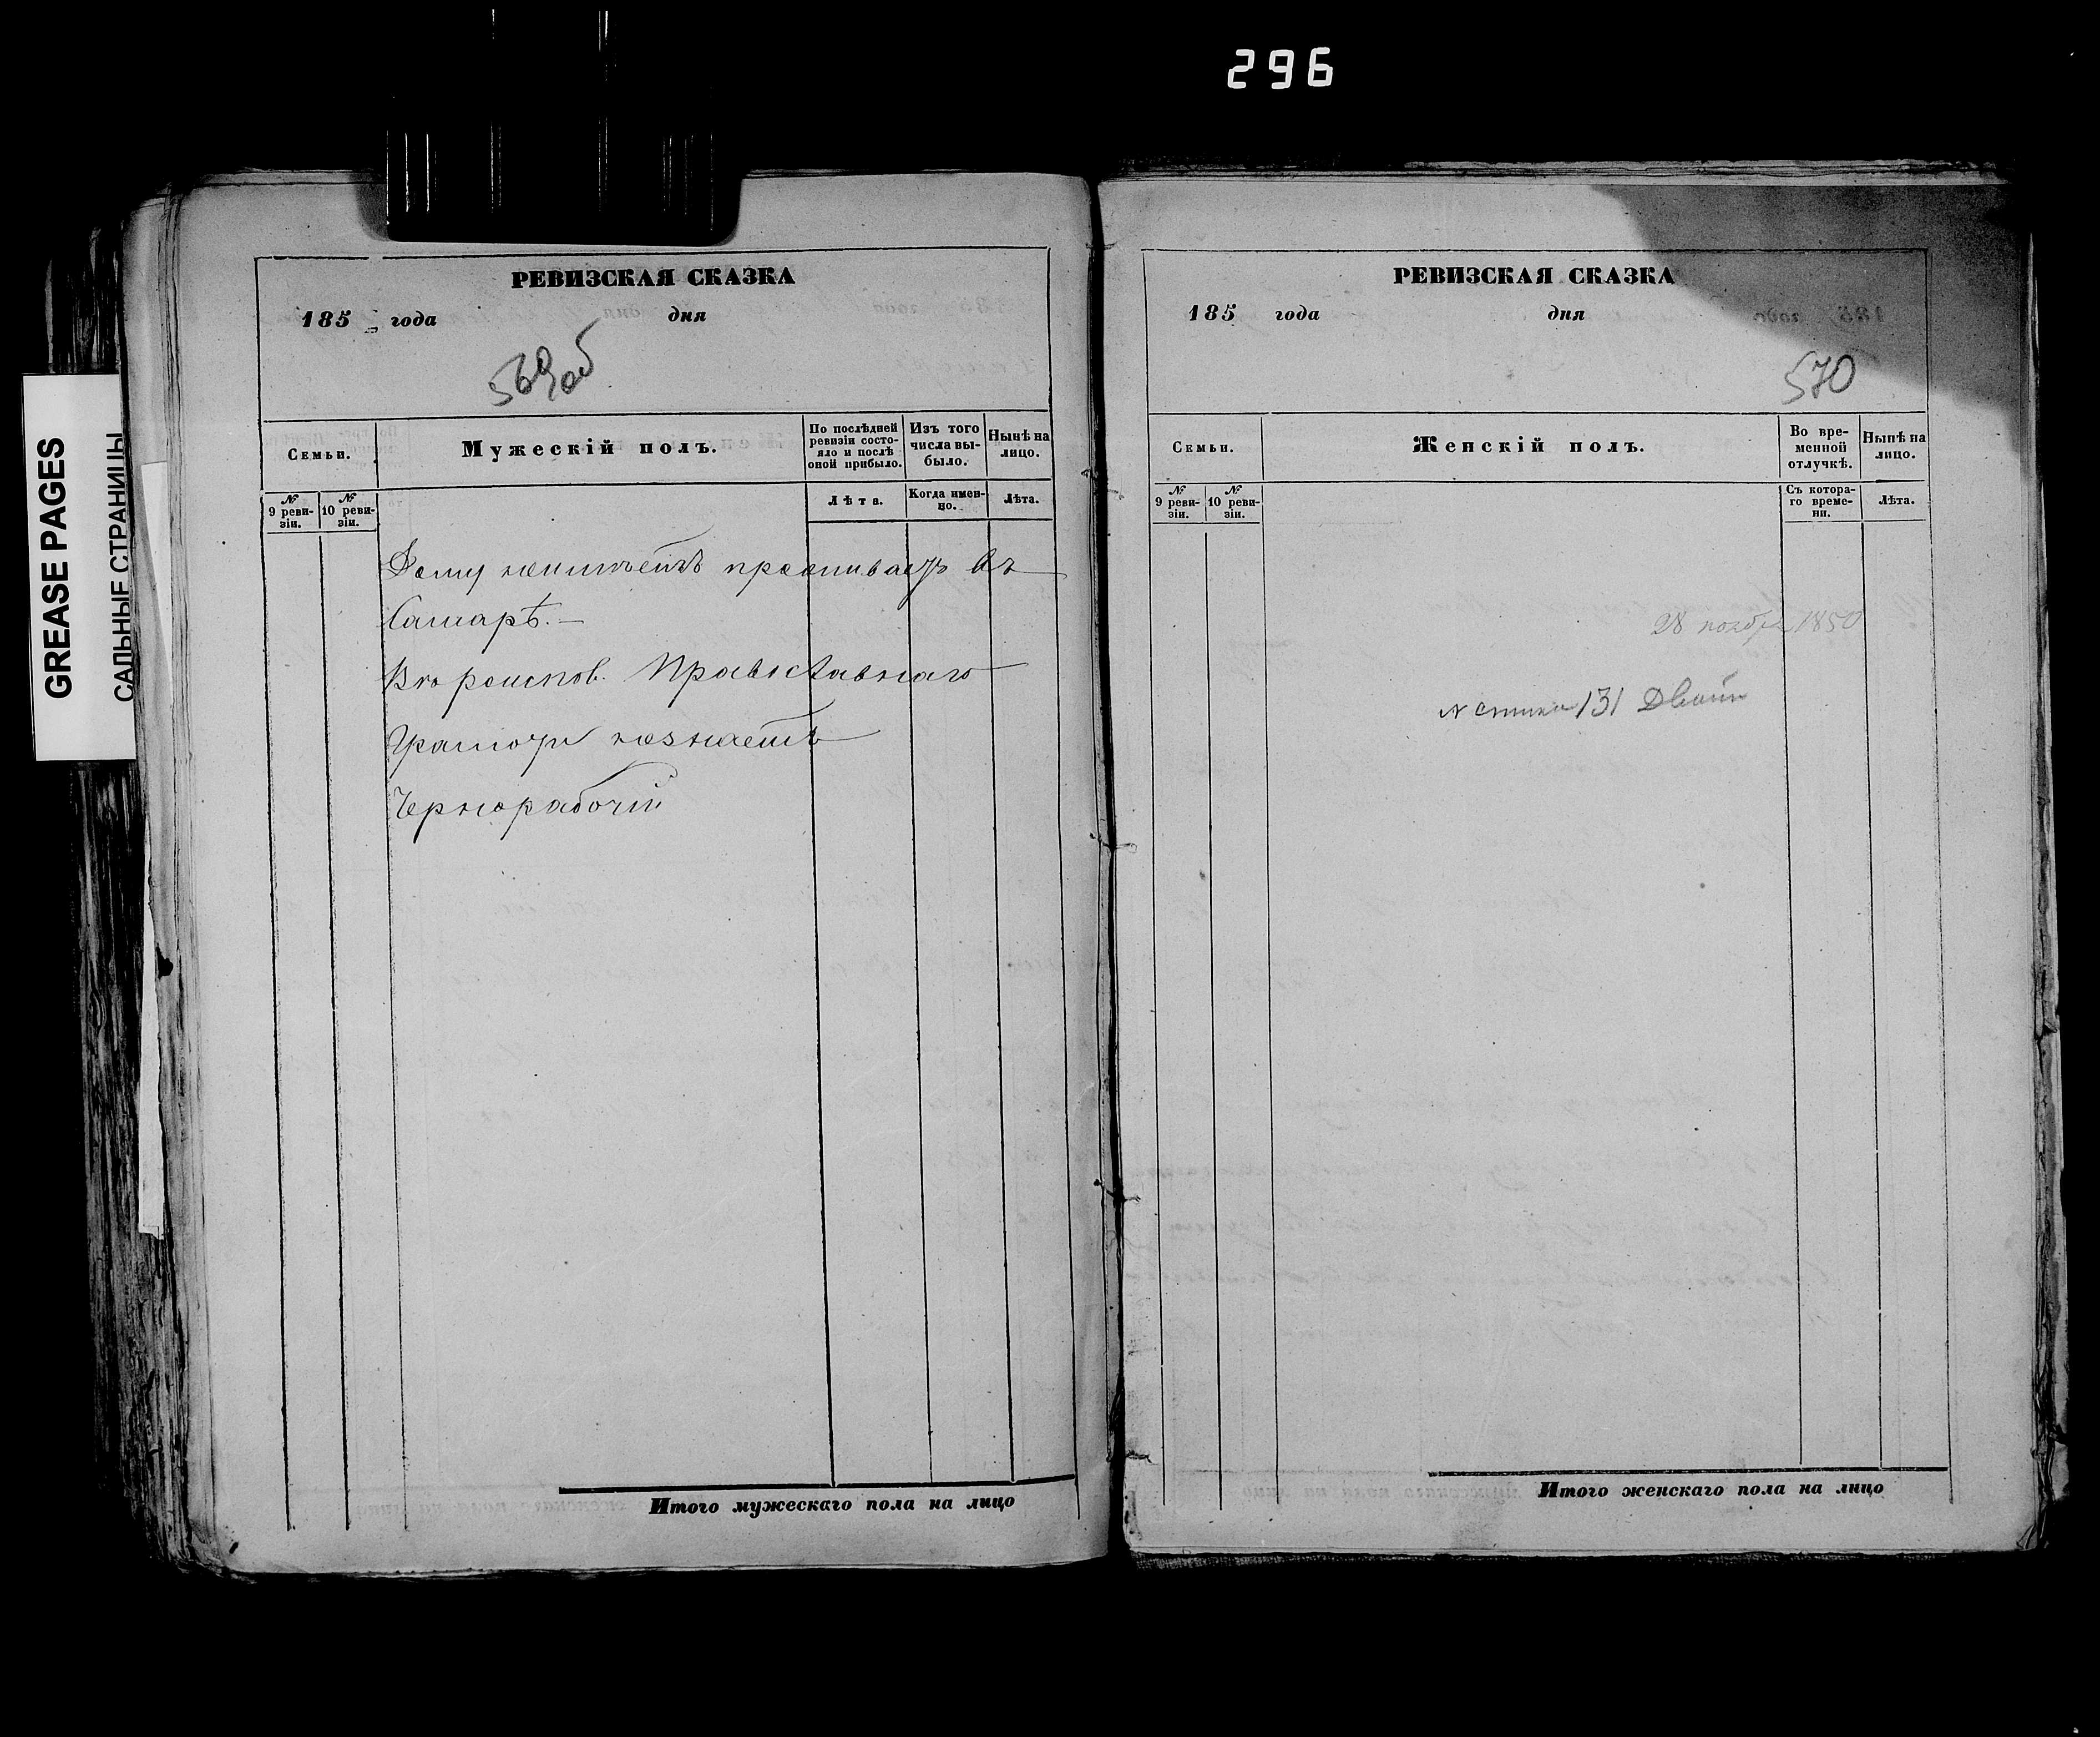 296
GREASE PAGES
САЛЬНЫЕ СТРАНИЦЫ
РЕВИЗСКАЯ СКАЗКА
185 года дня
569об
Семьи.
Мужескій полъ.
По послѣдней ревизіи состо-
яло и послѣ
оной прибыло.
Изъ того
числа вы-
было.
Нынѣ на
лицо.
№
9 реви-
зіи.
№
10 реви-
зіи.
Лѣта.
Когда имен-
но.
Лѣта.
Дому неимѣетъ проживаетъ въ
Самарѣ.—
Вѣроиспов. Православнаго
Грамоты незнаетъ
Чернорабочій
Итого мужескаго пола на лицо
РЕВИЗСКАЯ СКАЗКА
185 года дня
570
Семьи.
Женскій полъ.
Во вре-
менной
отлучкѣ.
Нынѣ на
лицо.
№
9 реви-
зіи.
№
10 реви-
зіи.
Съ котора-
го време-
ни.
Лѣта.
28 ноября 1850
131
Итого женскаго пола на лицо